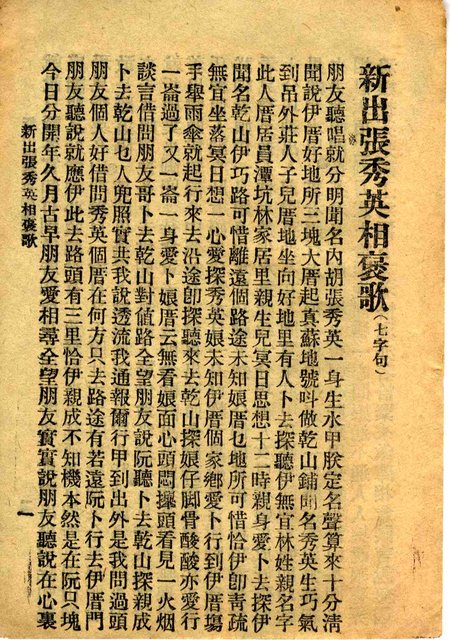 新出張秀英相褒歌(七字句)
朋友聽唱就分明聞名內胡張秀英一身生水甲朕定名聲算來十分淸
聞說伊厝好地所三塊大厝起真蘇地號呌做乾山鋪聞名秀英生巧氣
到吊外莊人子兒厝地坐向好地里有人卜去探聽伊無宜林姓親名字
此人厝居員潭坑林家居里親生兒冥日思想十二時親身愛卜去探伊
聞名乾山伊巧路可惜離遠個路途未知娘厝乜地所可惜恰伊卽靑疏
無宜坐落冥日想一心愛探秀英娘未知伊厝個家鄉愛卜行到伊厝塲
手舉雨傘就起行來去沿途卽探聽來去乾山探娘仔脚骨酸酸亦愛行
一崙過了又一崙一身愛卜娘厝云無看娘面心頭悶頭看見一火烟
談言借問朋友哥卜去乾山對値路全望朋友說阮聽卜去乾山探親成
卜去乾山乜人兜照實共我說透流我通報爾行甲到出外是我問過頭
朋友個人好借問秀英個厝在何方只去路途有若遠阮卜行去伊厝門
朋友聽說就應伊此去路頭有三里恰伊親成不知機本然是在阮只塊
今日分開年久月古早朋友愛相尋全望朋友實實說朋友聽說在心裏
新出張秀英相褒歌
一